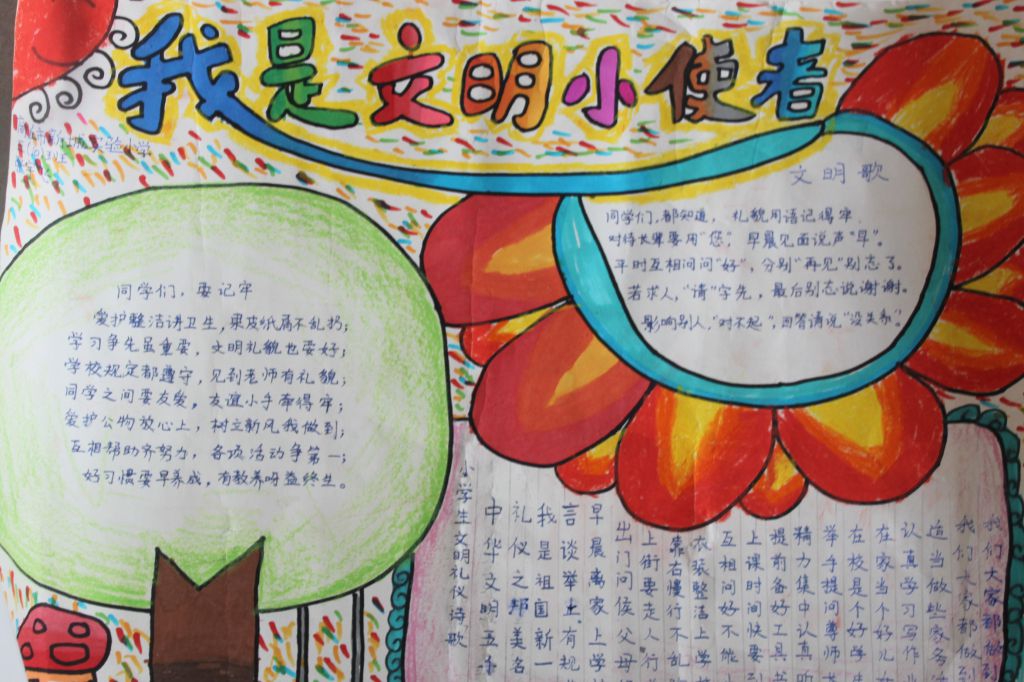 我是文明小使者
市新城实验小学
文明歌
同学们，都知道，礼貌用语记得牢，
对待长辈要用“您”，早晨见面说声“早”。
平时互相问问“好”，分别“再见”别忘了。
若求人，“请”字先，最后别忘说谢谢。
影响别人，“对不起”，回答请说“没关系”。
同学们，要记牢
爱护整洁讲卫生，果皮纸屑不乱扔；
学习争先虽重要，文明礼貌也要好；
学校规定都遵守，见到老师有礼貌；
同学之间要友爱，友谊小手牵得牢；
爱护公物放心上，树立新风我做到；
互相帮助齐努力，各项活动争第一；
好习惯要早养成，有教养呀益终生。
小学生文明礼仪诗歌
中华文明五千
礼仪之邦美名
我是祖国新一
言谈举止有规
早晨离家上学
出门问候父母
上街要走人行
靠右慢行不乱
衣装整洁上学
互相问好不能
上课时间快要到
提前备好工具书
精力集中认真听
举手提问尊师
在校是个好学生
在家当个好儿
认真学习写作
适当做些家务
我们大家都做到
我们大家都做到